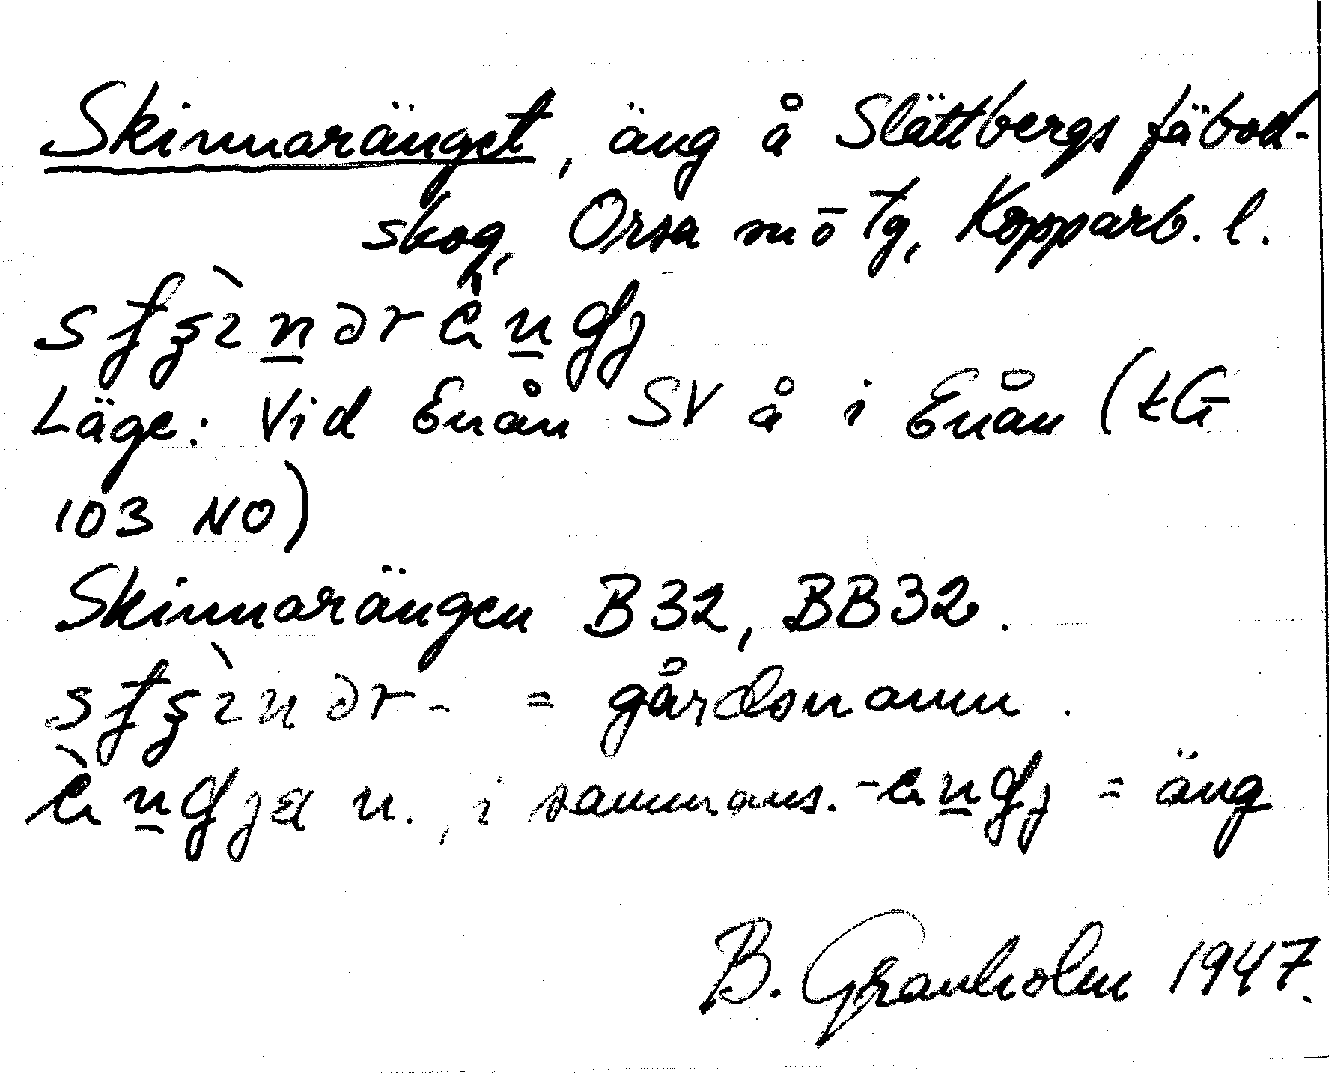 Skinnaränget, äng å Slättbergs fäbod-
skog, Orsa sn ö Tg, Kopparb. l.
Läge: Vid Enån SV å i Enån (tG
103 NO)
Skinnarängen B32, BB32.
= gårdsnamn.
n., i sammans. = äng
B. Granholm 1947.